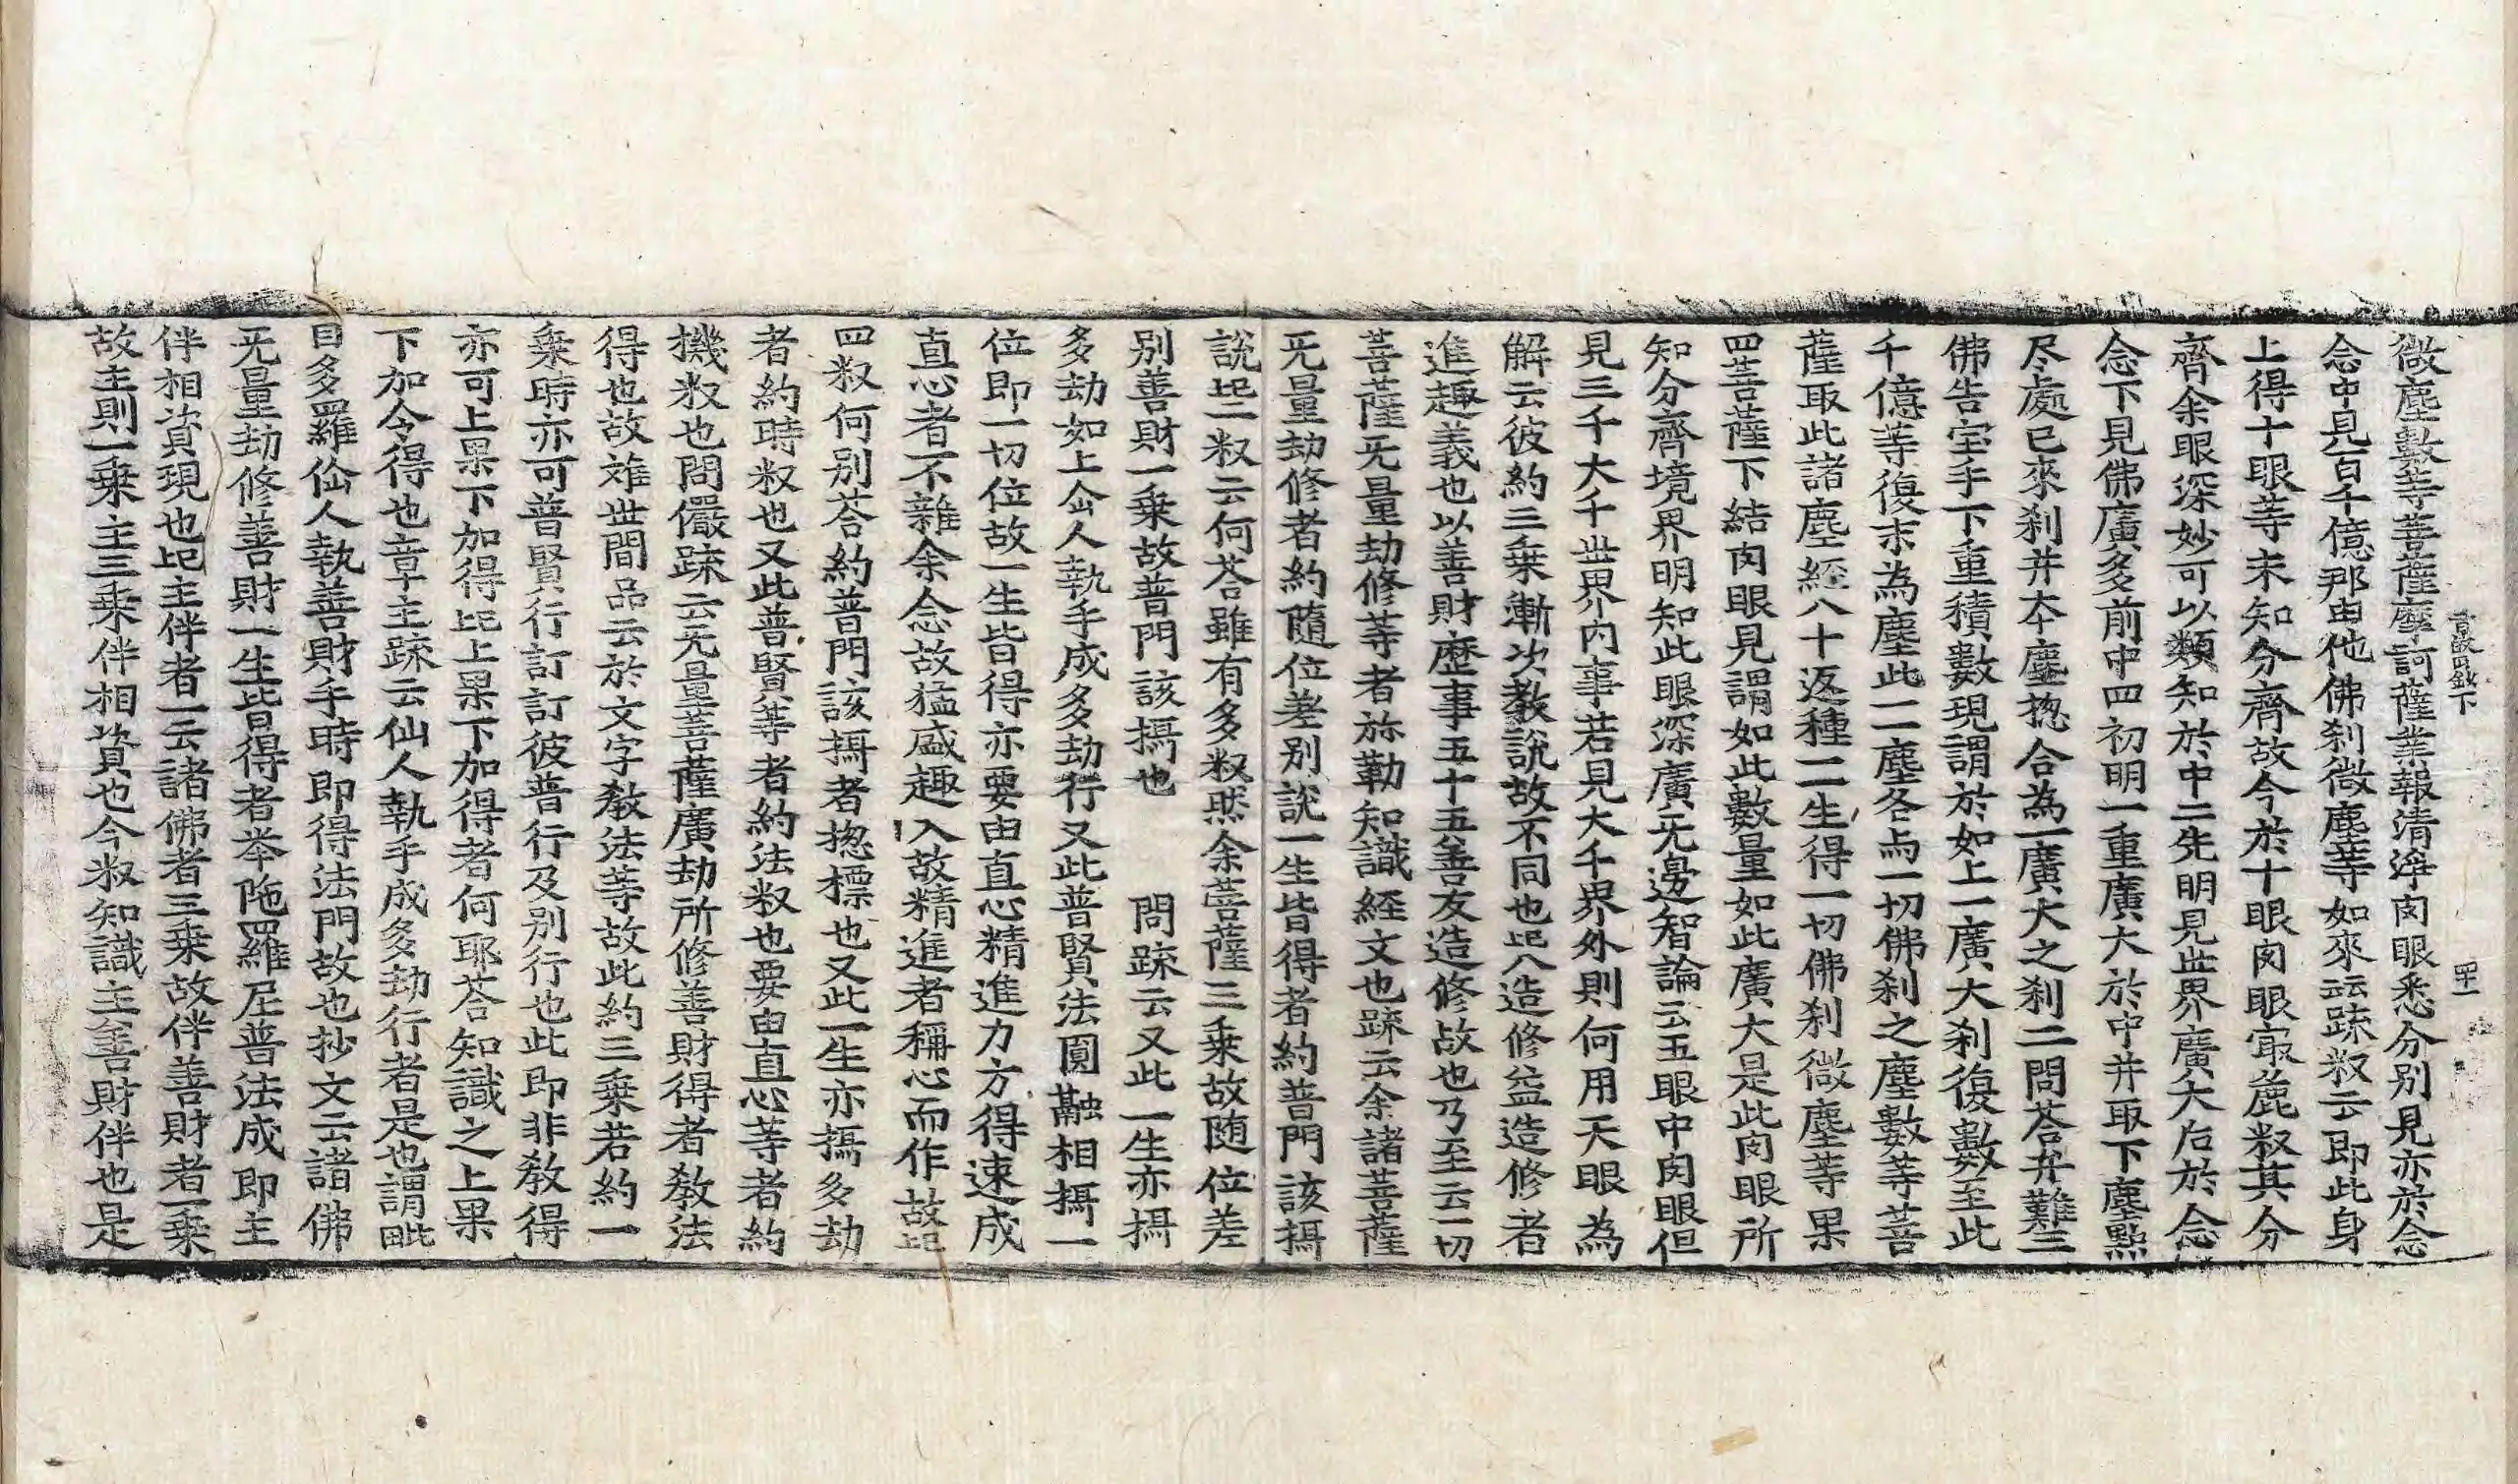 微塵數等菩薩摩訶薩業報清淨肉眼悉分別見亦於念
念中見百千億那由他佛刹微塵等如來云云䟽釈云即此身
上得十眼等未知分齊故今於十眼肉眼㝡麁釈其分
齊余眼深妙可以類知於中二先明見世界廣大后於念
念下見佛廣多前中四初明一重廣大於中并取下塵㸃
尽處已來刹并本塵揔合為一廣大之刹二問荅并難三
佛告宝手下重積數現謂於如上一廣大刹復數至此
千億等復末為塵此二塵各為一切佛刹之塵數等菩
薩取此諸塵経八十返種二生得一切佛刹微塵等果
四菩薩下結肉眼見謂如此數量如此廣大是此肉眼所
知分齊境界明知此眼深廣无邊智論云五眼中肉眼但
見三千大千世界内事若見大千界外則何用天眼為
解云彼約三乗漸次教說故不同也記八造修益造修者
進趣義也以善財歷事五十五善友造修故也乃至云一切
菩薩无量劫修等者弥勒知識経文也䟽云余諸菩薩
无量劫修者約隨位差别說一生皆得者約普門該攝
說記二釈云何荅雖有多釈然余菩薩三乗故随位差
别善財一乗故普門該攝也　問䟽云又此一生亦攝
多劫如上仚人執手成多劫行又此普賢法圓融相攝一
位即一切位故一生皆得亦要由直心精進力方得速成
直心者不雜余念故猛盛趣入故精進者稱心而作故記
四釈何别荅約普門該攝者揔標也又此一生亦攝多劫
者約時釈也又此普賢等者約法釈也要由直心等者約
機釈也問儼䟽云无量菩薩廣劫所修善財得者教法
得也故雑世間品云於文字教法等故此約三乗若約一
乗時亦可普賢行訂訂彼普行及别行也此即非教得
亦可上果下加得記上果下加得者何耶荅知識之上果
下加令得也章主䟽云仙人執手成多劫行者是也謂毗
目多羅仚人執善財手時即得法門故也抄文云諸佛
无量劫修善財一生皆得者举陁羅尼普法成即主
伴相資現也記主伴者一云諸佛者三乗故伴善財者一乗
故主則一乗主三乗伴相資也今釈知識主善財伴也是
下
四十一